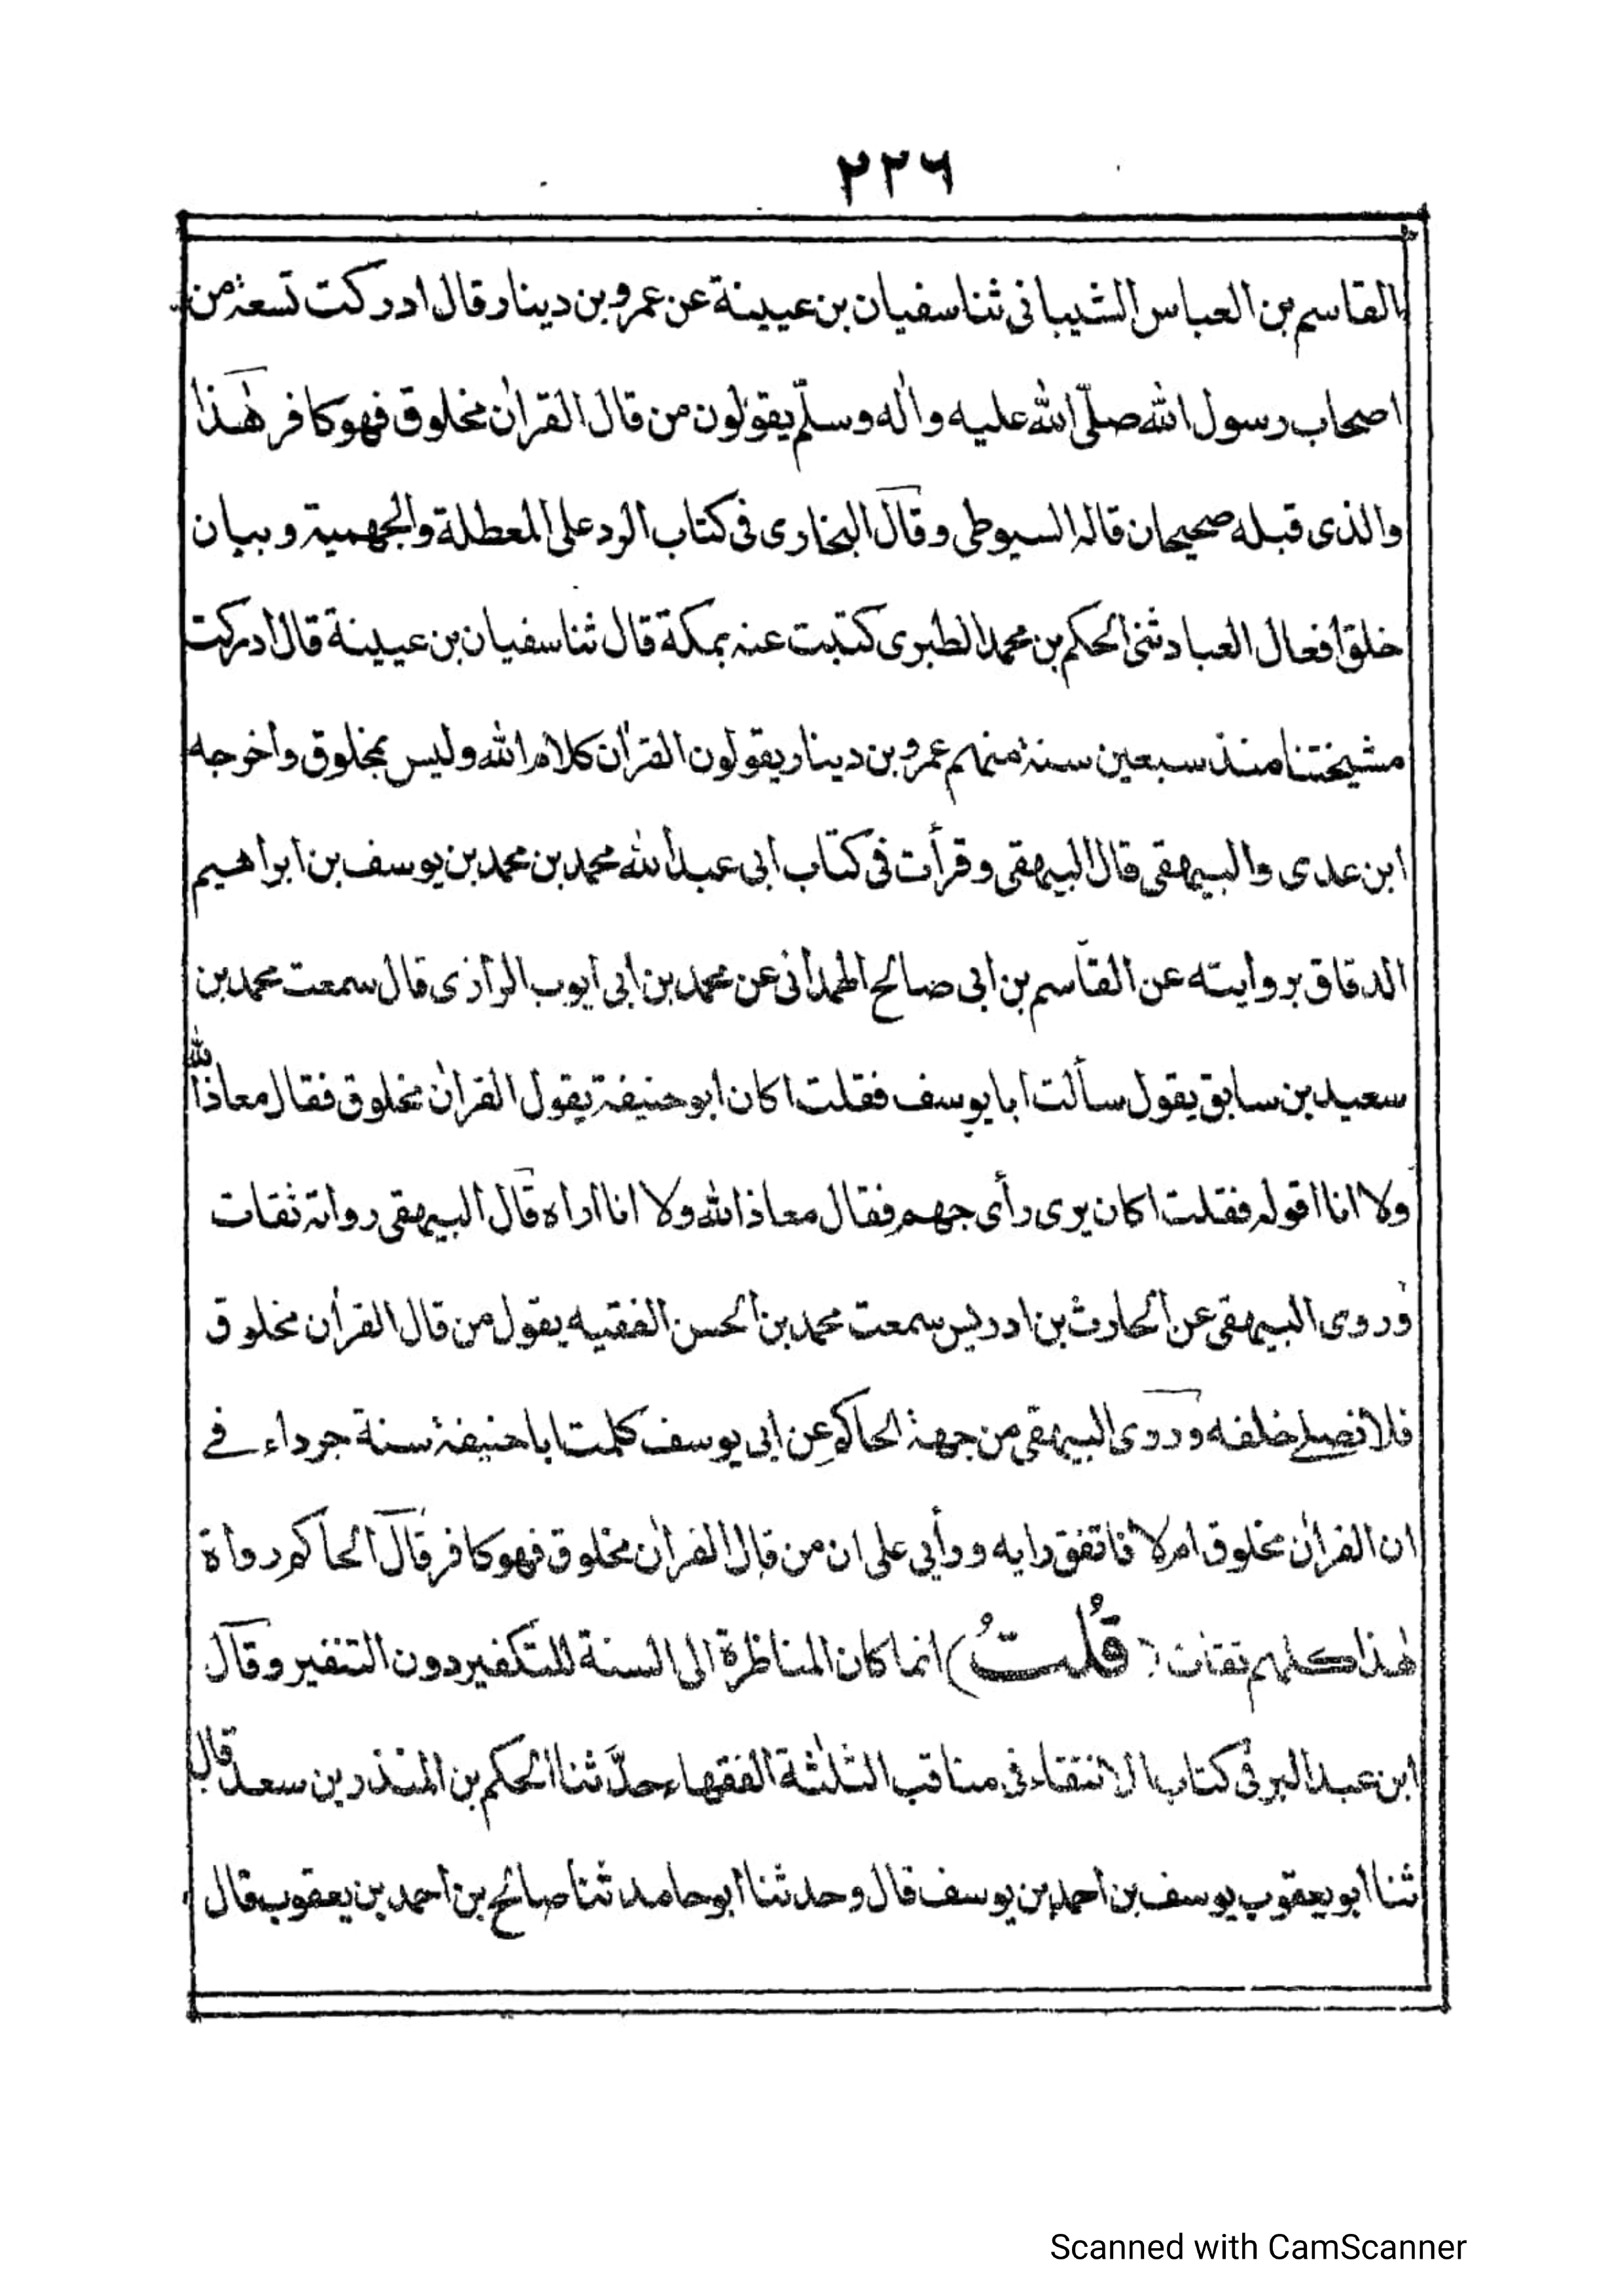 ٢٢٦
القاسم بن العباس الشيبانى ثنا سفيان بن عيينة عن عمرو بن دينار قال ادركت تسعة من
اصحاب رسول الله صلّى الله عليه واٰله وسلّم يقولون من قال القراٰن مخلوق فهو كافر هٰذا
والذى قبله صحيحان قاله السيوطى وقال البخارى فى كتاب الرد على المعطلة والجهمية وبيان
خلق افعال العباد ثنى الحكم بن محمد الطبرى كتبت عنه بمكة قال ثنا سفيان بن عيينة قال ادركت
مشيختنا منذ سبعين سنة منهم عمرو بن دينار يقولون القراٰن كلام الله وليس بمخلوق واخرجه
ابن عدى والبيهقى قال البيهقى وقرأت فى كتاب ابى عبد الله محمد بن محمد بن يوسف بن ابراهيم
الدقاق بروايته عن القاسم بن ابى صالح الهمدانى عن محمد بن ابى ايوب الرازى قال سمعت محمد بن
سعيد بن سابق يقول سألت ابا يوسف فقلت اكان ابو حنيفة يقول القراٰن مخلوق فقال معاذ الله
ولا انا اقوله فقلت اكان يرى رأى جهم فقال معاذ الله ولا انا اراه قال البيهقى رواته ثقات
وروى البيهقى عن الحارث بن ادريس سمعت محمد بن الحسن الفقيه يقول من قال القراٰن مخلوق
فلا تصلے خلفه وروى البيهقى من جهة الحاكم عن ابى يوسف كلمت ابا حنيفة سنة جرداء فے
ان القراٰن مخلوق ام لا فاتفق رايه ورأيى على ان من قال القراٰن مخلوق فهو كافر قال الحاكم رواة
هٰذا كلهم ثقات (قُلتُ) انما كان المناظرة الى السنة للتكفير دون التنفير وقال
ابن عبد البر فى كتاب الانتقاء فى مناقب الثلٰثة الفقهاء حدّثنا الحكم بن المنذر بن سعد قال
ثنا ابو يعقوب يوسف بن احمد بن يوسف قال وحدثنا ابو حامد ثنا صالح بن احمد بن يعقوب قال
Scanned with CamScanner